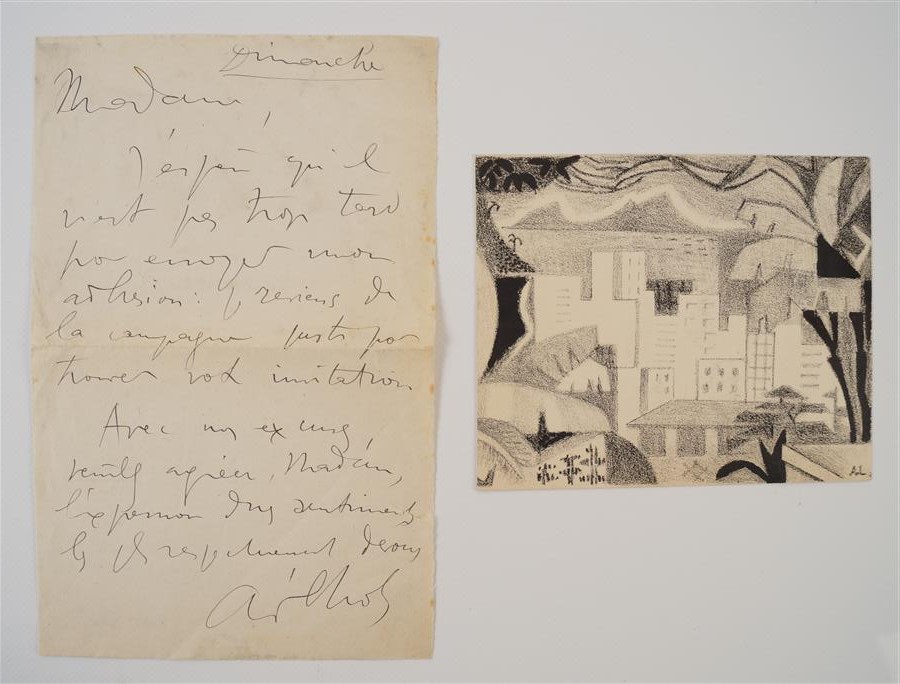 Dimanche
Madame,
J'espère qu'il
n'est pas trop tard
pour envoyer mon
adhésion : je reviens de
la campagne juste pour
trouver votre invitation
Avec mes excuses
veuillez agréer, Madame,
l'expression des sentiments
les plus respectueusement dévoués
A. Lhote
A.L.